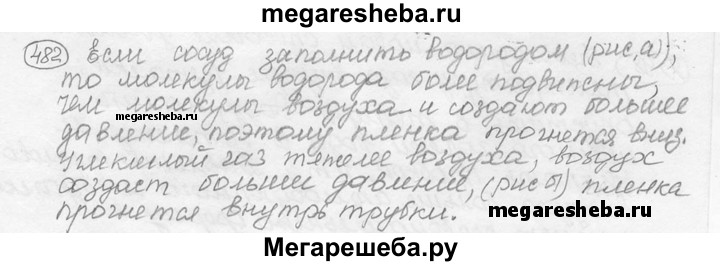 megaresheba.ru
482 Если сосуд заполнить водородом (рис,а),
то молекулы водорода более подвижны,
чем молекулы воздуха и создают большее
megaresheba.ru
давление, поэтому пленка прогнется вниз.
Углекислый газ тяжелее воздуха, воздух
создаст большее давление, (рис б) пленка
прогнется внутрь трубки.
megaresheba.ru
Мегарешеба.ру